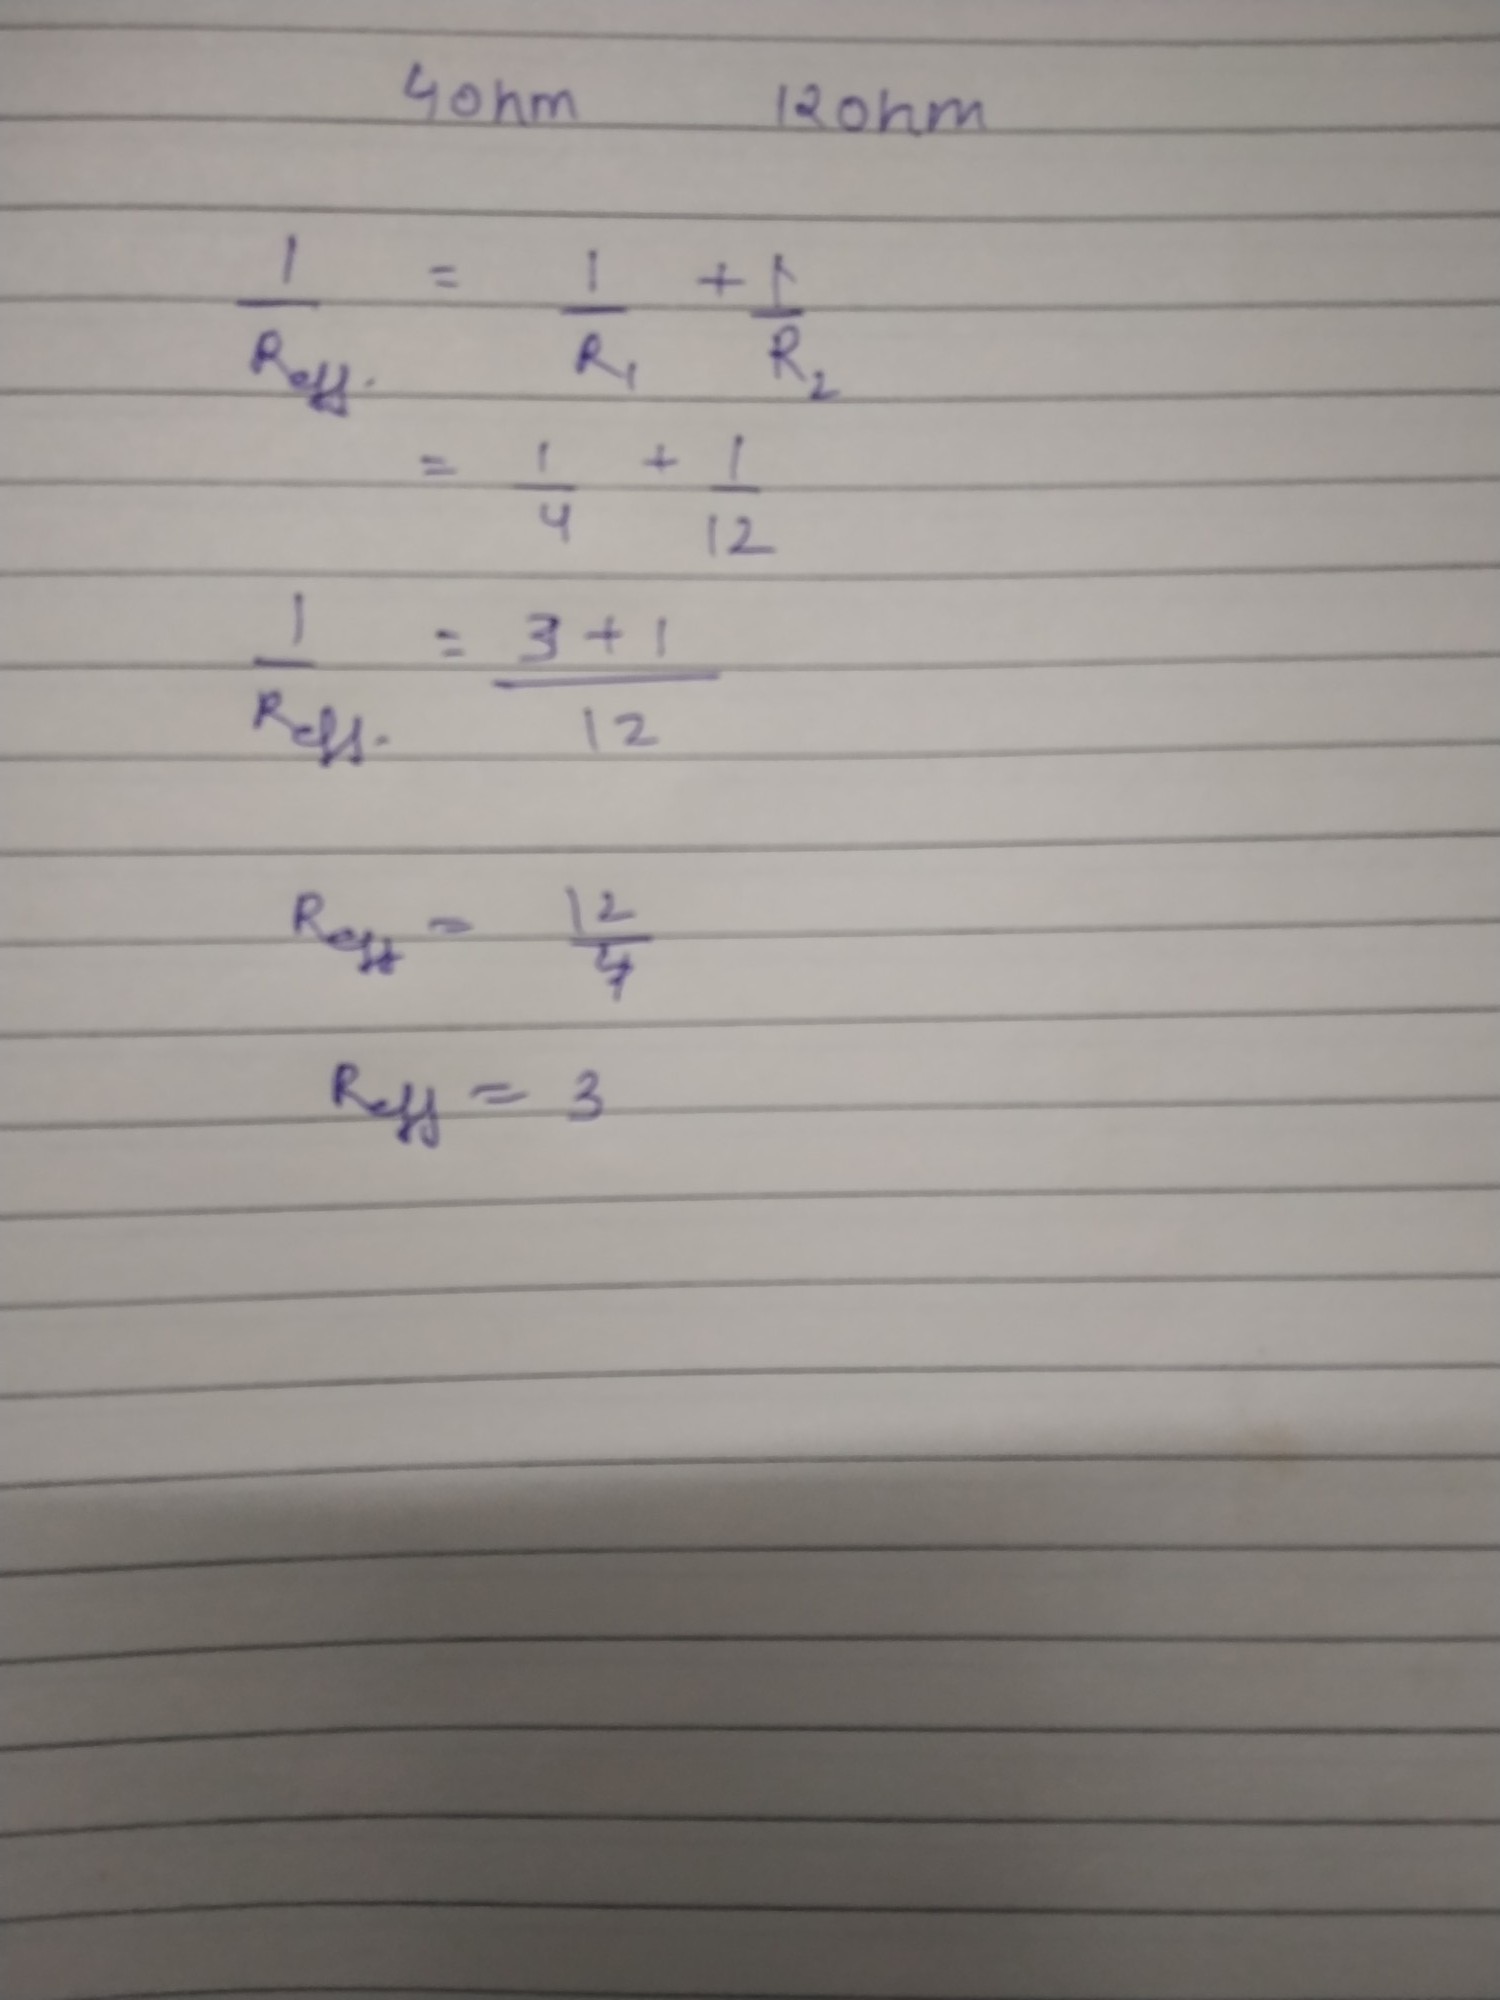 4ohm 12ohm
1/Reff. = 1/R1 + 1/R2
= 1/4 + 1/12
1/Reff. = 3+1/12
Reff = 12/4
Reff = 3